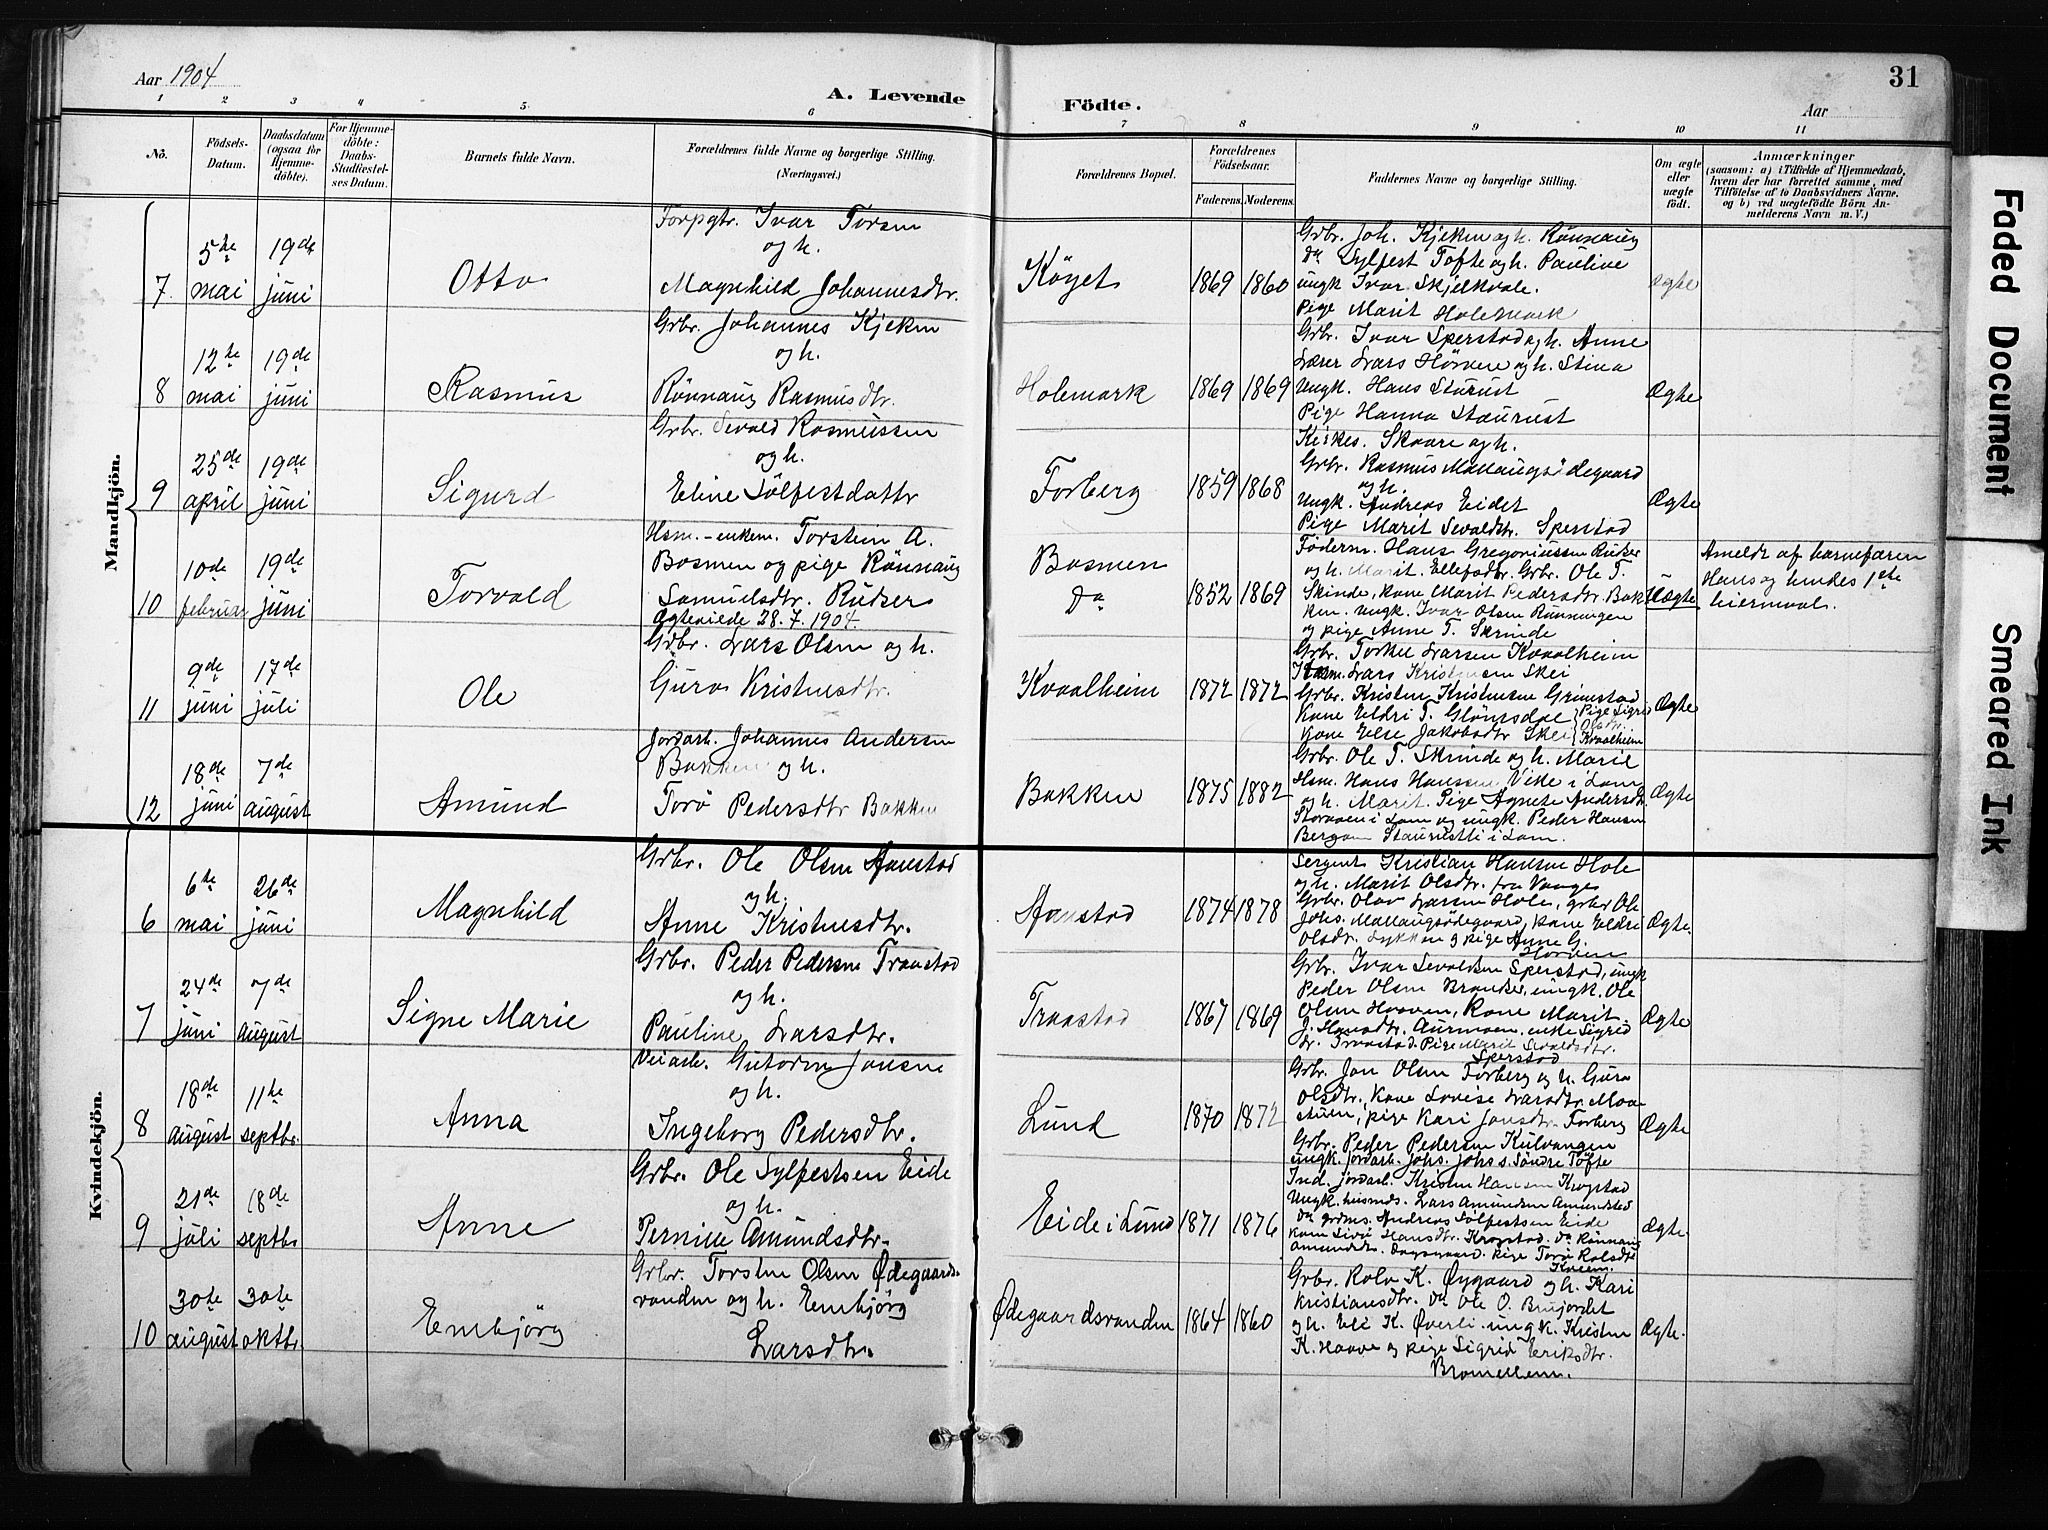 Aar 1904
A. Levende Födte.
Aar
31
1 2 3 4 5 6 7 8 9 10 11
No.
Födsels-Datum.
Daabsdatum (ogsaa för Hjemme-döbte).
For Hjemme-döbte: Daabs-Stadfæstel-ses Datum.
Barnets fulde Navn.
Forældrenes fulde Navne og borgerlige Stilling.
(Næringsvei.)
Forældrenes Bopæl.
Forældrenes Födselsaar.
Faderens. Moderens.
Faddernes Navne og borgerlige Stilling.
Om ægte eller uægte födt.
Anmærkninger
(saasom: a) i Tilfælde af Hjemmedaab,
hvem der har forrettet samme, med
Tilföielse af to Daabsvidners Navne.
og b) ved uegtefödte Börn An-
melderens Navn m. V.)
Mandkjön.
7
5te mai
19de juni
Otto
Forpgtr. Ivar Torsen
og h.
Magnhild Johannesdtr.
Köyet
1869 1860
Grbr. Joh. Kjeken og h. Rönnaug
Do Sylfest Tofte og h. Pauline
ungk Ivar Skjelkvale.
Pige Marit Holemark
Ægte
8
12te mai
19de juni
Rasmus
Grbr. Johannes Kjeken
og h.
Rönnaug Rasmusdtr.
Holemark
1869 1869
Grbr. Ivar Sperstad og h. Anne
Lærer Lars Hörven og h. Stina
Ungk. Hans Staurust
Pige Hanna Staurust
Ægte
9
25de april
19de juni
Sigurd
Grbr. Sevald Rasmussen
og h.
Eline Sölfestdattr
Forberg
1859 1868
Kirkes. Skaare og h.
Grbr. Rasmus Mallaugsödegaard
og h.
Ungk. Andreas Eidet
Pige Marit Sevaldtr. Sperstad
Ægte
10
10de februar
19de juni
Torvald
Hsm.-enkem. Torstein A.
Bosmen og pige Rönnaug
Samuelsdtr. Rudser
Ægteviede 28.7.1904.
Bosmen
Do
1852 1869
Föderm. Hans Gregoriussen Rudser
og h. Marit Ellefsdtr. Grbr. Ole T.
Skinde, kone Marit Pedersdtr Bak
ken. ungk. Ivar Olsen Rönningen
og pige Anne T. Skrinde
Uægte
Ameldt af barnefaren
Hans og hendes 1ste
leiermaal.
11
9de juni
17de juli
Ole
Grbr. Lars Olsen og h.
Guro Kristensdtr.
Kvaalheim
1872 1872
Grbr. Torkel Larsen Kvaalheim
Lars Kristensen Skei
Grbr. Kristen Kristensen Grimstad
Kone Eldri T. Glömsdal
Kone Else Jakobsdtr Skei
Pige Sigrid
Olsdtr.
Kvaalheim
Ægte
12
18de juni
7de august
Amund
Jordarb. Johannes Andersen
Bakken og h.
Torö Pedersdtr Bakken
Bakken
1875 1882
Grbr. Ole T. Skrinde og h. Marie
Hsm. Hans Hanssen Vike i Lom
og h. Marit. Pige Agnete Andersdtr.
Storoien i Lom og ungk. Peder Hansen
Bergom Staurustli i Lom.
Ægte
Kvindekjön.
6
6te mai
26de juni
Magnhild
Grbr. Ole Olsen Aanstad
og h.
Anne Kristensdtr.
Aanstad
1874 1878
Sergent Kristian Hansen Hole
og h. Marit Olsdtr. fra Vaage
Grbr. Olav Larsen Hole, grbr Ole
Johs. Mallaugsödegaard, kone Eldri
Olsdtr. Lykken og pige Anne G.
Horven
Ægte.
7
24de juni
7de august
Signe Marie
Grbr. Peder Pedersen Traastad
og h.
Pauline Larsdtr.
Traastad
1867 1869
Grbr. Ivar Sevaldsen Sperstad, ungk
Peder Olsen Brenker, ungk. Ole
Olsen Horven, Kone Marit
J. Hansdtr. Aurmoen, enke Sigrid
Traastad. Pige Marit Sevaldsdtr.
Sperstad
Ægte
8
18de august
11te septbr.
Anna
Veiarb. Gutorm Jonsen
og h.
Ingeborg Pedersdtr.
Lund
1870 1872
Grbr. Jon Olsen Forberg og h. Guro
Olsdtr., Kone Lovise Larsdtr. Moa
stuen, pige Kari Jonsdtr. Forberg
Grbr. Peder Pedersen Kulvangen
ungk. jordarb. Johs. Johs s. Söndre Tofte
Ægte
9
21de juli
18de septbr
Anne
Grbr. Ole Sylfestsen Eide
og h.
Pernille Amundsdtr.
Eide i Lund
1871 1876
Ind. jordarb. Kristen Hansen Krogstad
Ungk. husmds. Lars Amundsen Amundstad
Do grdms. Andreas Sölfestsen Eide
Kone Live Hansdtr. Krogstad. Do Rönnaug
Amundsdtr. Dagsgaard. Pige Torö Rolsdtr
Kveem.
Ægte.
10
30te august
30te oktbr.
Embjörg
Grbr. Torsten Olsen Ødegaards-
randen og h. Embjörg
Larsdtr.
Ødegaardsranden
1864 1860
Grbr. Rolv K. Øygaard og h. Kari
Kristiansdtr. Do Ole O. Brujordet
og h. Eli K. Øverli. ungk. Kristen
K. Haave og pige Sigrid Eriksdtr.
Bramellem.
Ægte.
Faded Document
Smeared Ink